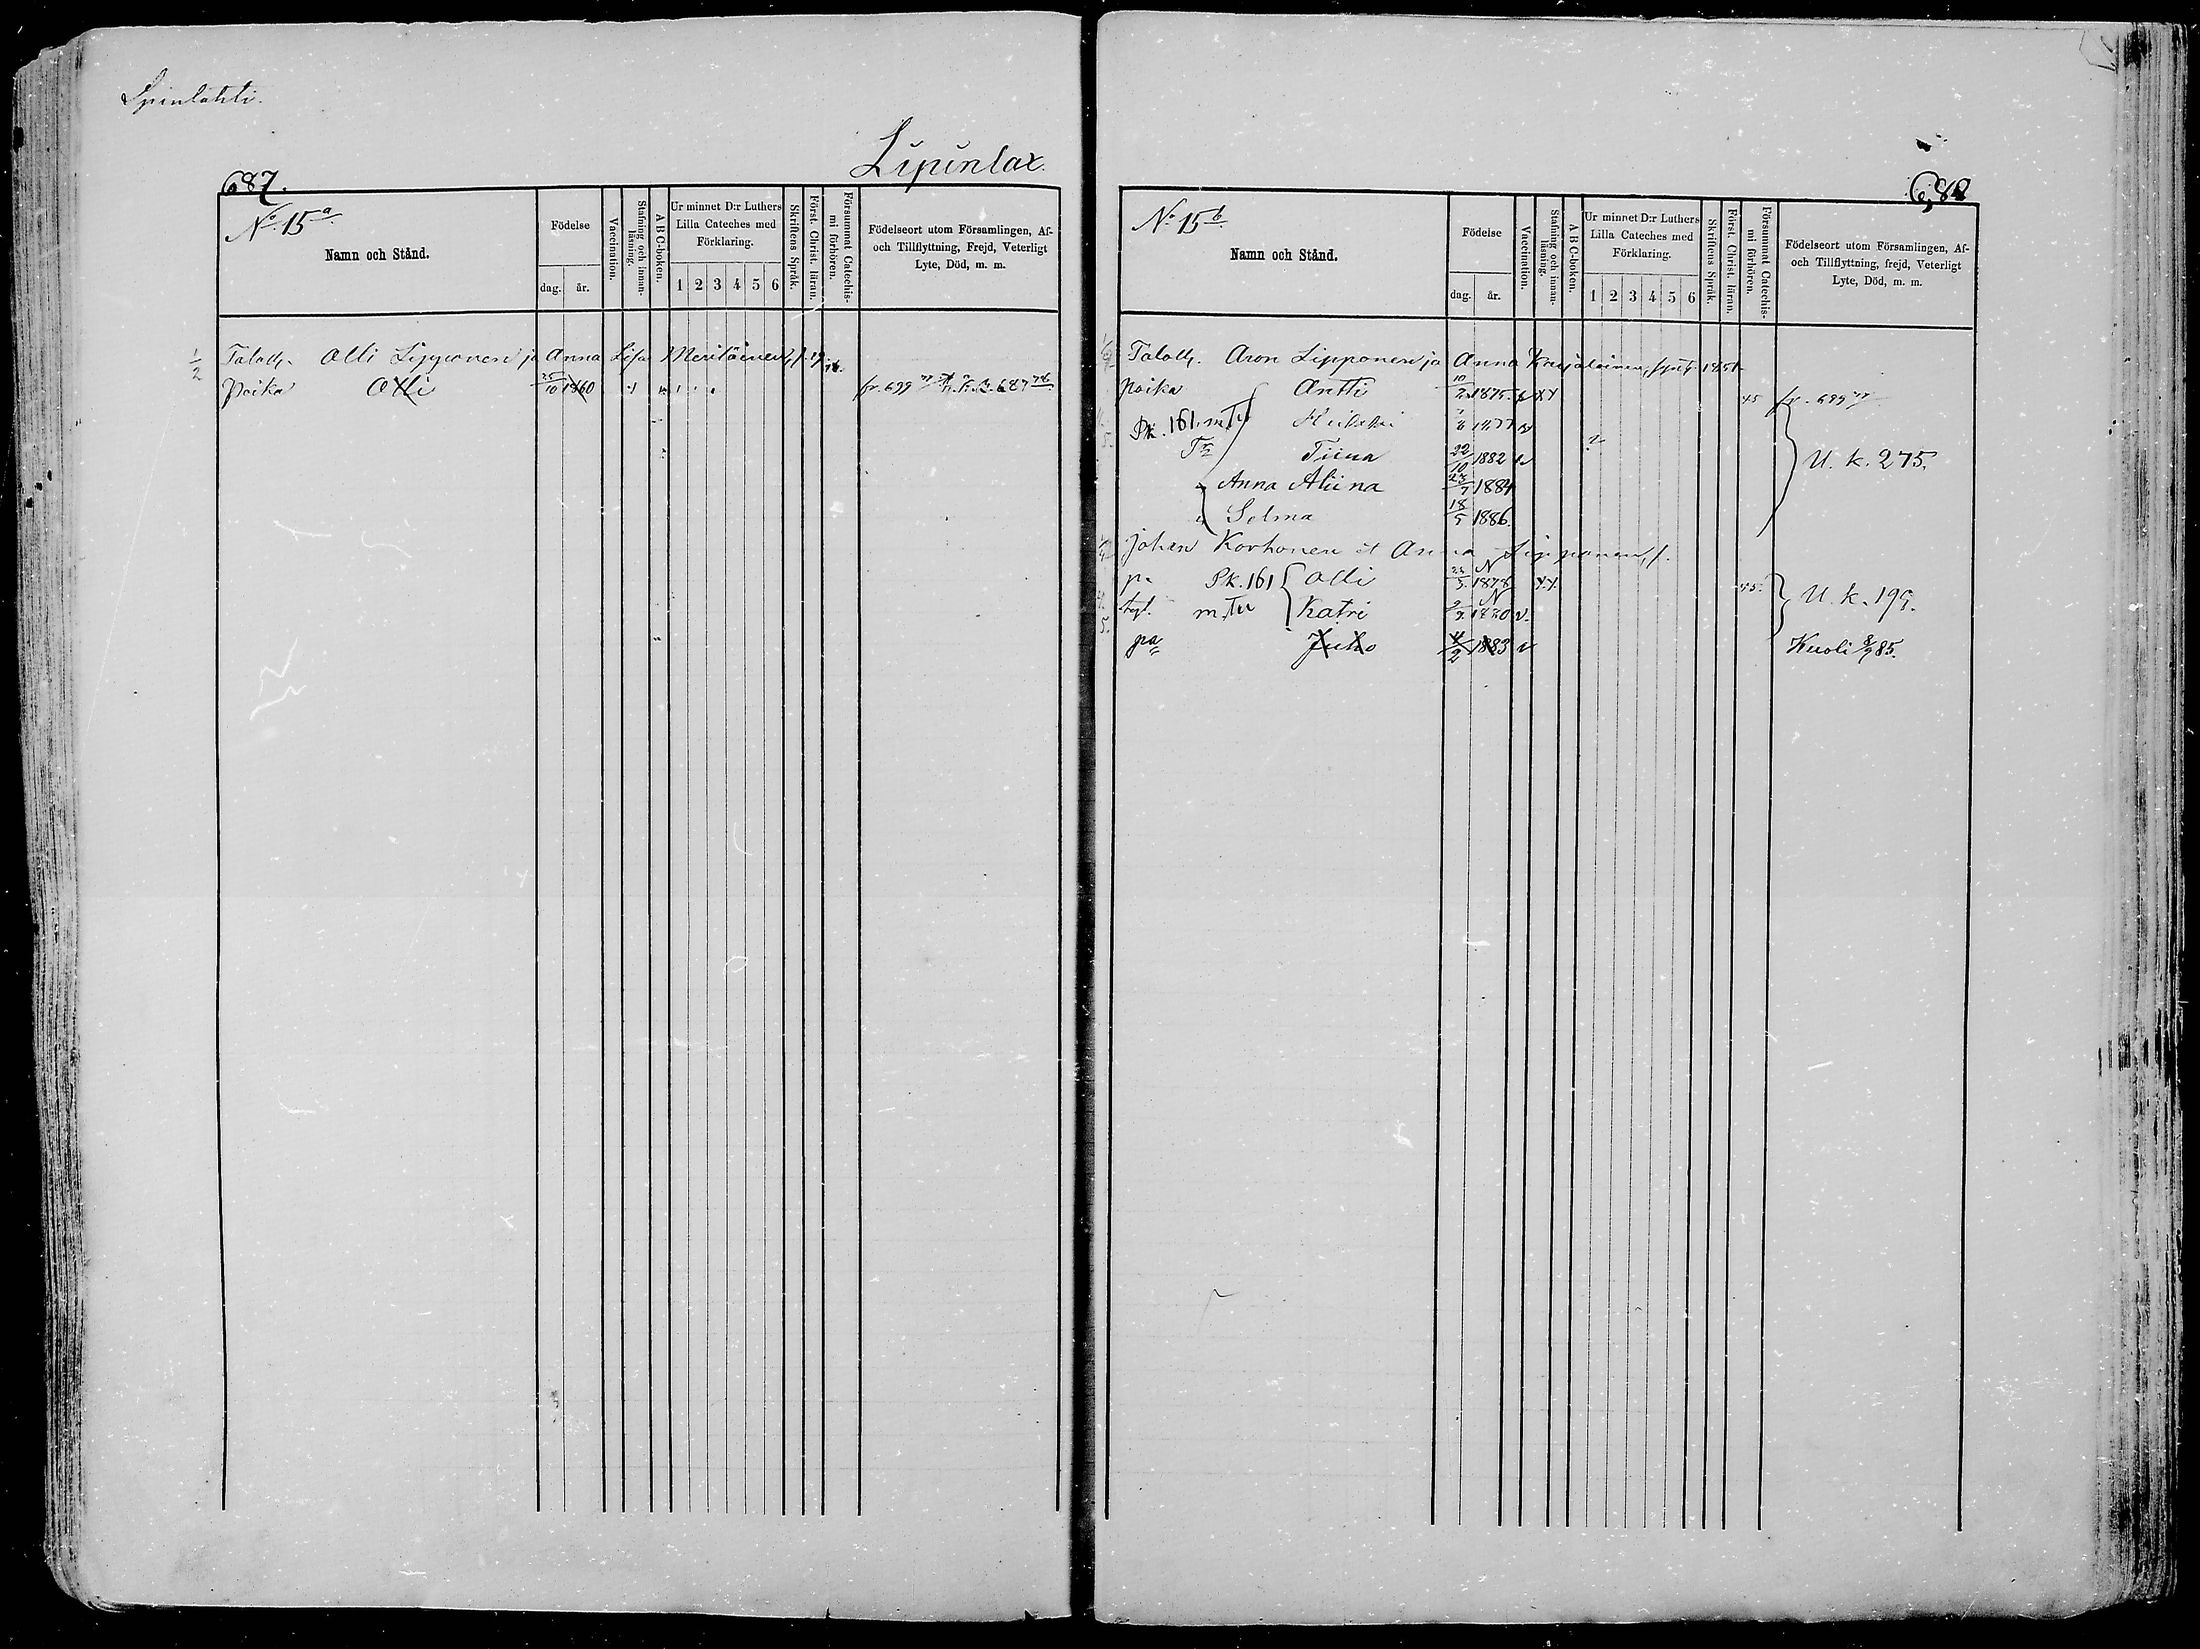 Lipinlax.
687.
No 15 a
Namn och Stånd.
Födelse
dag. år.
Vaccination.
Stafning och innanläsning.
ABC-boken.
Ur minnet D:r Luthers Lilla Cateches med Förklaring.
1 2 3 4 5 6
Skriftens Språk.
Förset. Christ. läran.
Försummat Catechismi förhören.
Födelseort utom Församlingen, Af- och Tillflyttning, Frejd, Veterligt Lyte, Död, m. m.
Talall. Olli Lipponen ja Anna Lisa Meriläinen
Poika Olli 10 1860 fr. 699 687
688
No 15 b
Namn och Stånd.
Födelse
dag. år.
Vaccination.
Stafning och innanläsning.
ABC-boken.
Ur minnet D:r Luthers Lilla Cateches med Förklaring.
1 2 3 4 5 6
Skriftens Språk.
Först. Christ. läran.
Försummat Catechismi förhören.
Födelseort utom Församlingen, Af- och Tillflyttning, frejd, Veterligt Lyte, Död, m. m.
Talall. Aron Lipponen ja Anna Karjalainen
poika Antti 10/2 1875 fr. 699
Pk. 161. Heikki 1877
Tiina 22/10 1882 U. k. 275.
Anna Aliina 23/7 1884
Selma 18/5 1886.
Johan Korhonen et Anna Lipponen
p. Pk. 161 Olli 1878
tyt. Katri U. k. 199.
pa Juho 4/2 1883 v Kuoli 8/9 85.